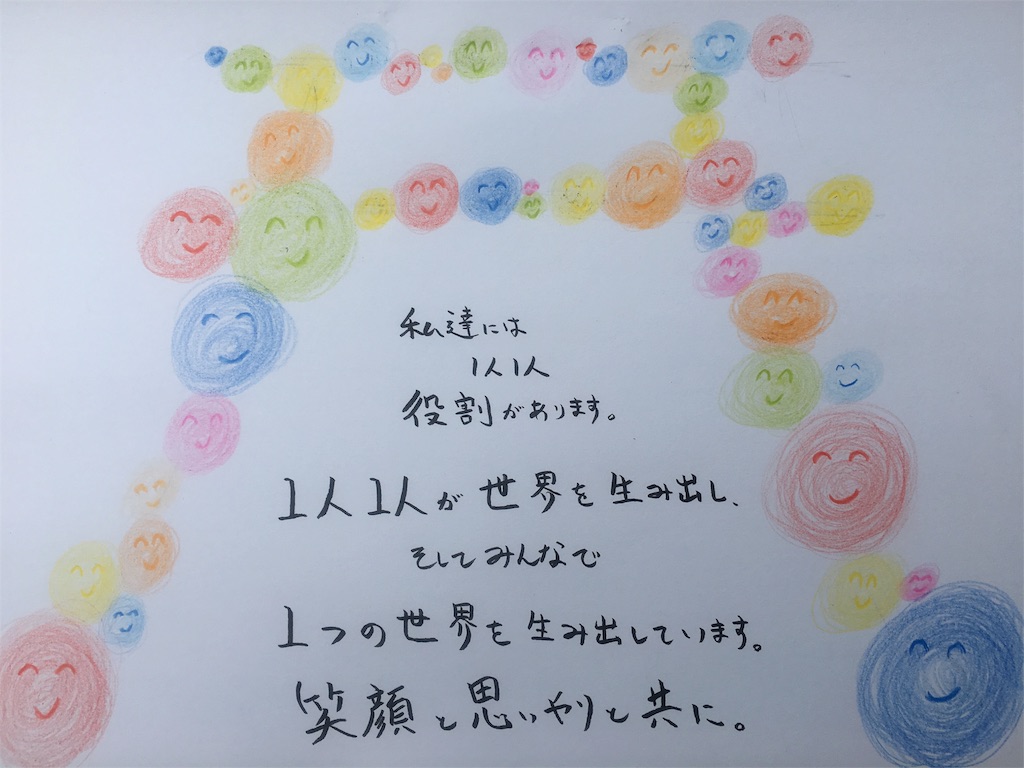 私達には
1人1人
役割があります。
1人1人が世界を生み出し、
そしてみんなで
1つの世界を生み出しています。
笑顔と思いやりと共に。